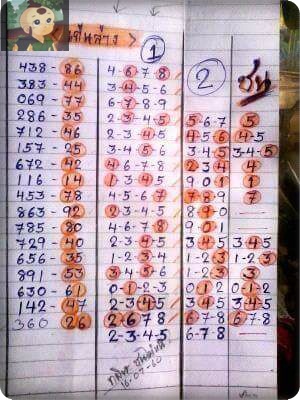 เน้นล่าง > 1 2 ชน
438 - 86 4-6-7-8
383 - 44 3-4-5-6
069 - 77 6-7-8-9
286 - 35 2-3-4-5 5-6-7 5
712 - 46 2-3-4-5 4-5-6 4-5
157 - 25 3-4-5-6 3-4-5 3-4-5
672 - 42 4-6-7-8 2 3 4 4
116 - 14 1-3-4-5 9 0 1 1
453 - 78 4-5-6-7 7-8-9 7
863 - 92 2-3-4-5 8-9-0
785 - 80 4-6-7-8 9-0-1
729 - 40 2-3-4-5 3 4 5 3-4-5
656 - 35 1-2-3-4 1-2-3 1-2-3
891 - 53 3-4-5-6 1-2-3 3
630 - 61 0-1-2-3 0 1 2 0-1-2
142 - 47 2-3-4-5 3-4-5 3-4-5
360 26 2-6 7 8 6 7-8 6 7-8
2-3-4-5 6-7-8
16-07-60